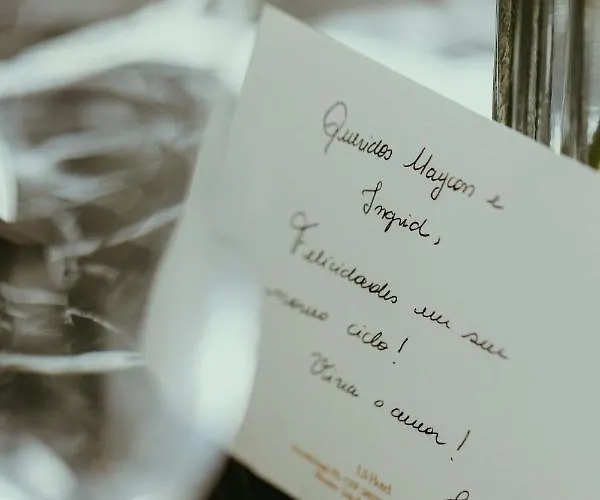 Queridos Maycon e
Ingrid,
Felicidades em seu
novo ciclo!
Viva o amor!